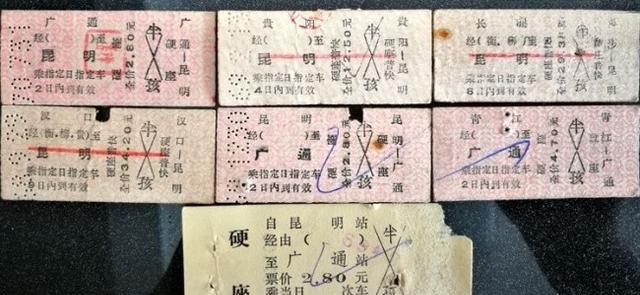 广 通
经( )至
昆 明
硬座
全价2.80元
半
孩
硬座
广通—昆明
乘指定日指定车
2日内到有效
贵 阳
经( )至
昆 明
硬座普快
全价12.50元
半
孩
硬座普快
贵阳—昆明
乘指定日指定车
4日内到有效
长 沙
经(衡、柳、贵)至
昆 明
硬座普快
半
孩
长沙—昆明
乘指定日指定车
8日内到有效
汉 口
经(衡、柳、贵)至
昆 明
硬座普快
全价34.20元
半
孩
硬座普快
汉口—昆明
乘指定日指定车
日内到有效
昆 明
经( )至
广 通
硬座
全价2.80元
半
孩
硬座
昆明—广通
乘指定日指定车
2日内到有效
青 江
经( )至
广 通
硬座
全价4.70元
半
孩
硬座
青江—广通
乘指定日指定车
2日内到有效
硬座
自 昆 明 站
经由( )
至 广 通 站
票价 2.80 元
乘当日 次车
半
孩